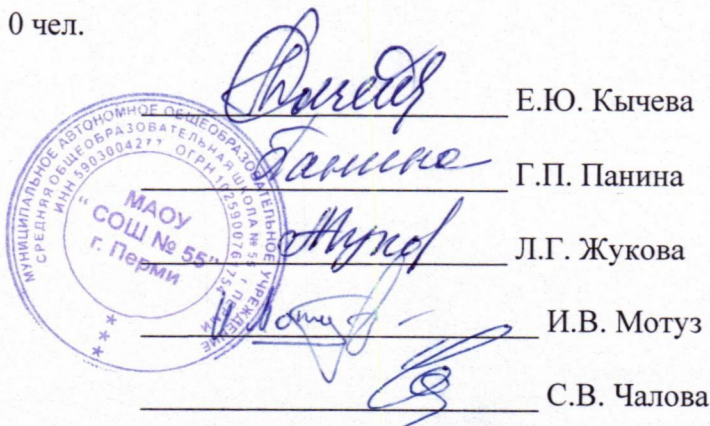 0 чел.
Е.Ю. Кычева
Панина Г.П. Панина
Л.Г. Жукова
И.В. Мотуз
С.В. Чалова
МУНИЦИПАЛЬНОЕ АВТОНОМНОЕ ОБЩЕОБРАЗОВАТЕЛЬНОЕ УЧРЕЖДЕНИЕ
СРЕДНЯЯ ОБЩЕОБРАЗОВАТЕЛЬНАЯ ШКОЛА № 55 г. ПЕРМИ
ИНН 5903004277 ОГРН
МАОУ
“ СОШ № 55”
г. Перми